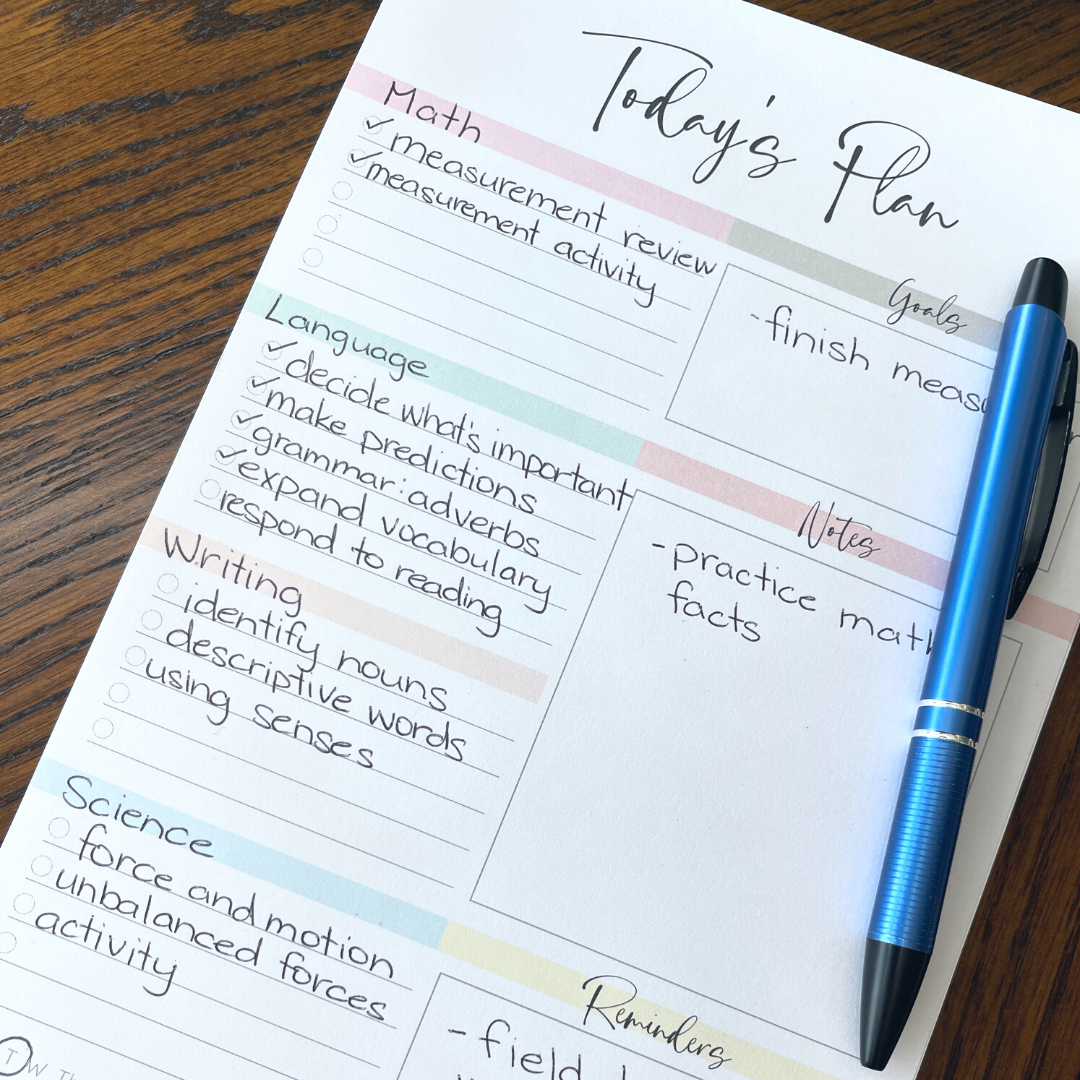 Today's Plan
Math
measurement review
measurement activity
Goals
-finish
Language
decide what's important
make predictions
grammar: adverbs
expand vocabulary
respond to reading
Notes
-practice math
facts
Writing
identify nouns
descriptive words
using senses
Science
force and motion
unbalanced forces
activity
Reminders
-field
T W